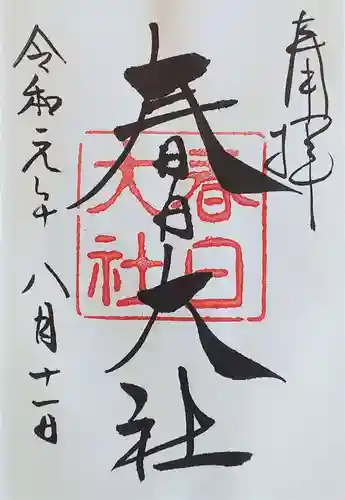 奉拝
春日大社
春日大社
令和元年八月十一日